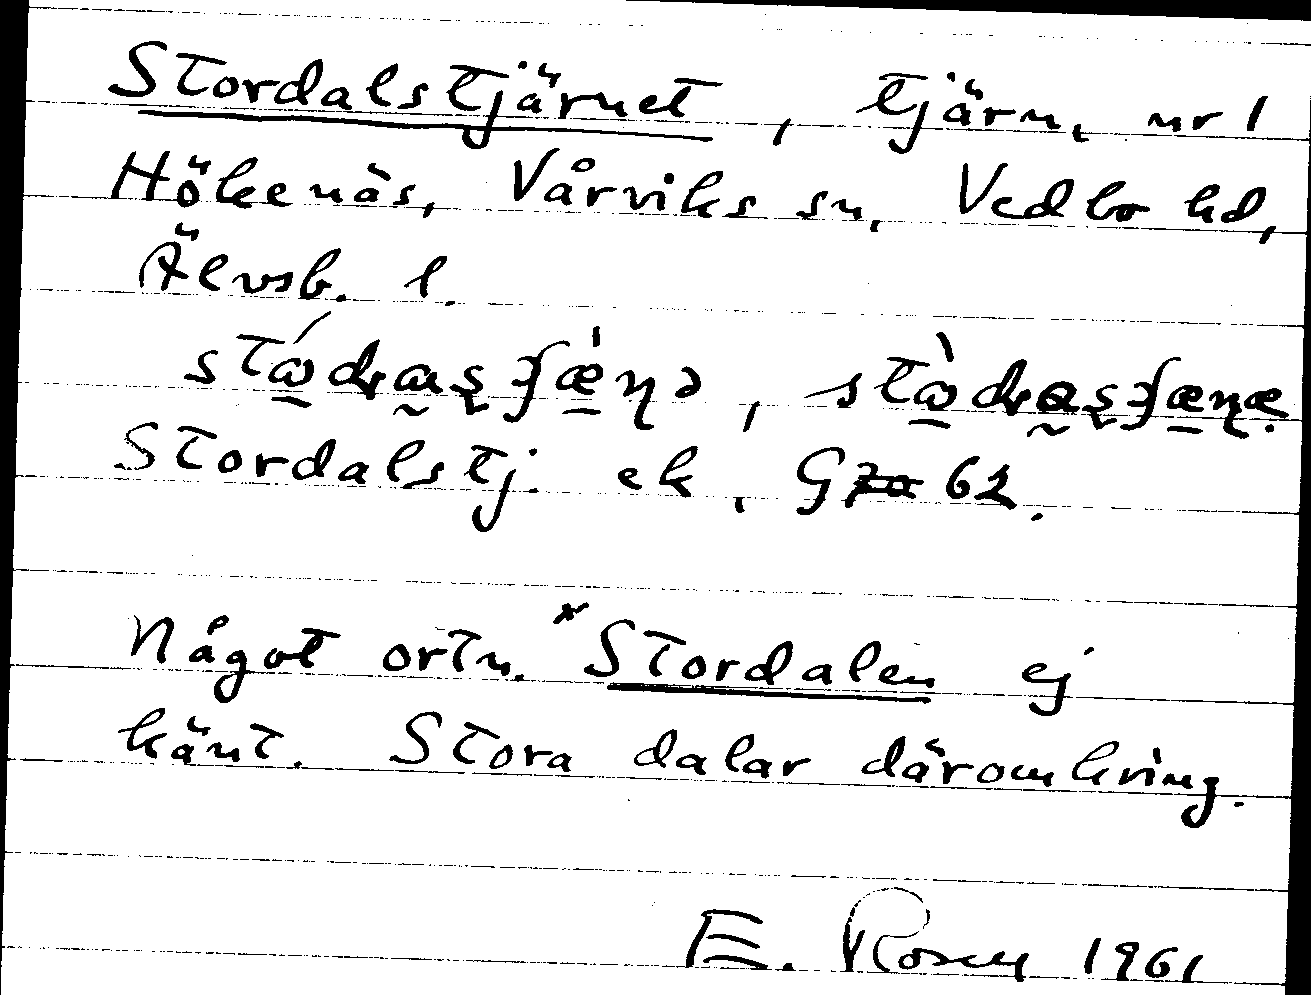 Stordalstjärnet, tjärn, nr 1
Hökenäs, Vårviks sn, Vedbo hd,
Älvsb. l.
Stordalstj. ek. G7a 62.
Något ortn. *Stordalen ej
känt. Stora dalar däromkring.
E. Rosen 1961